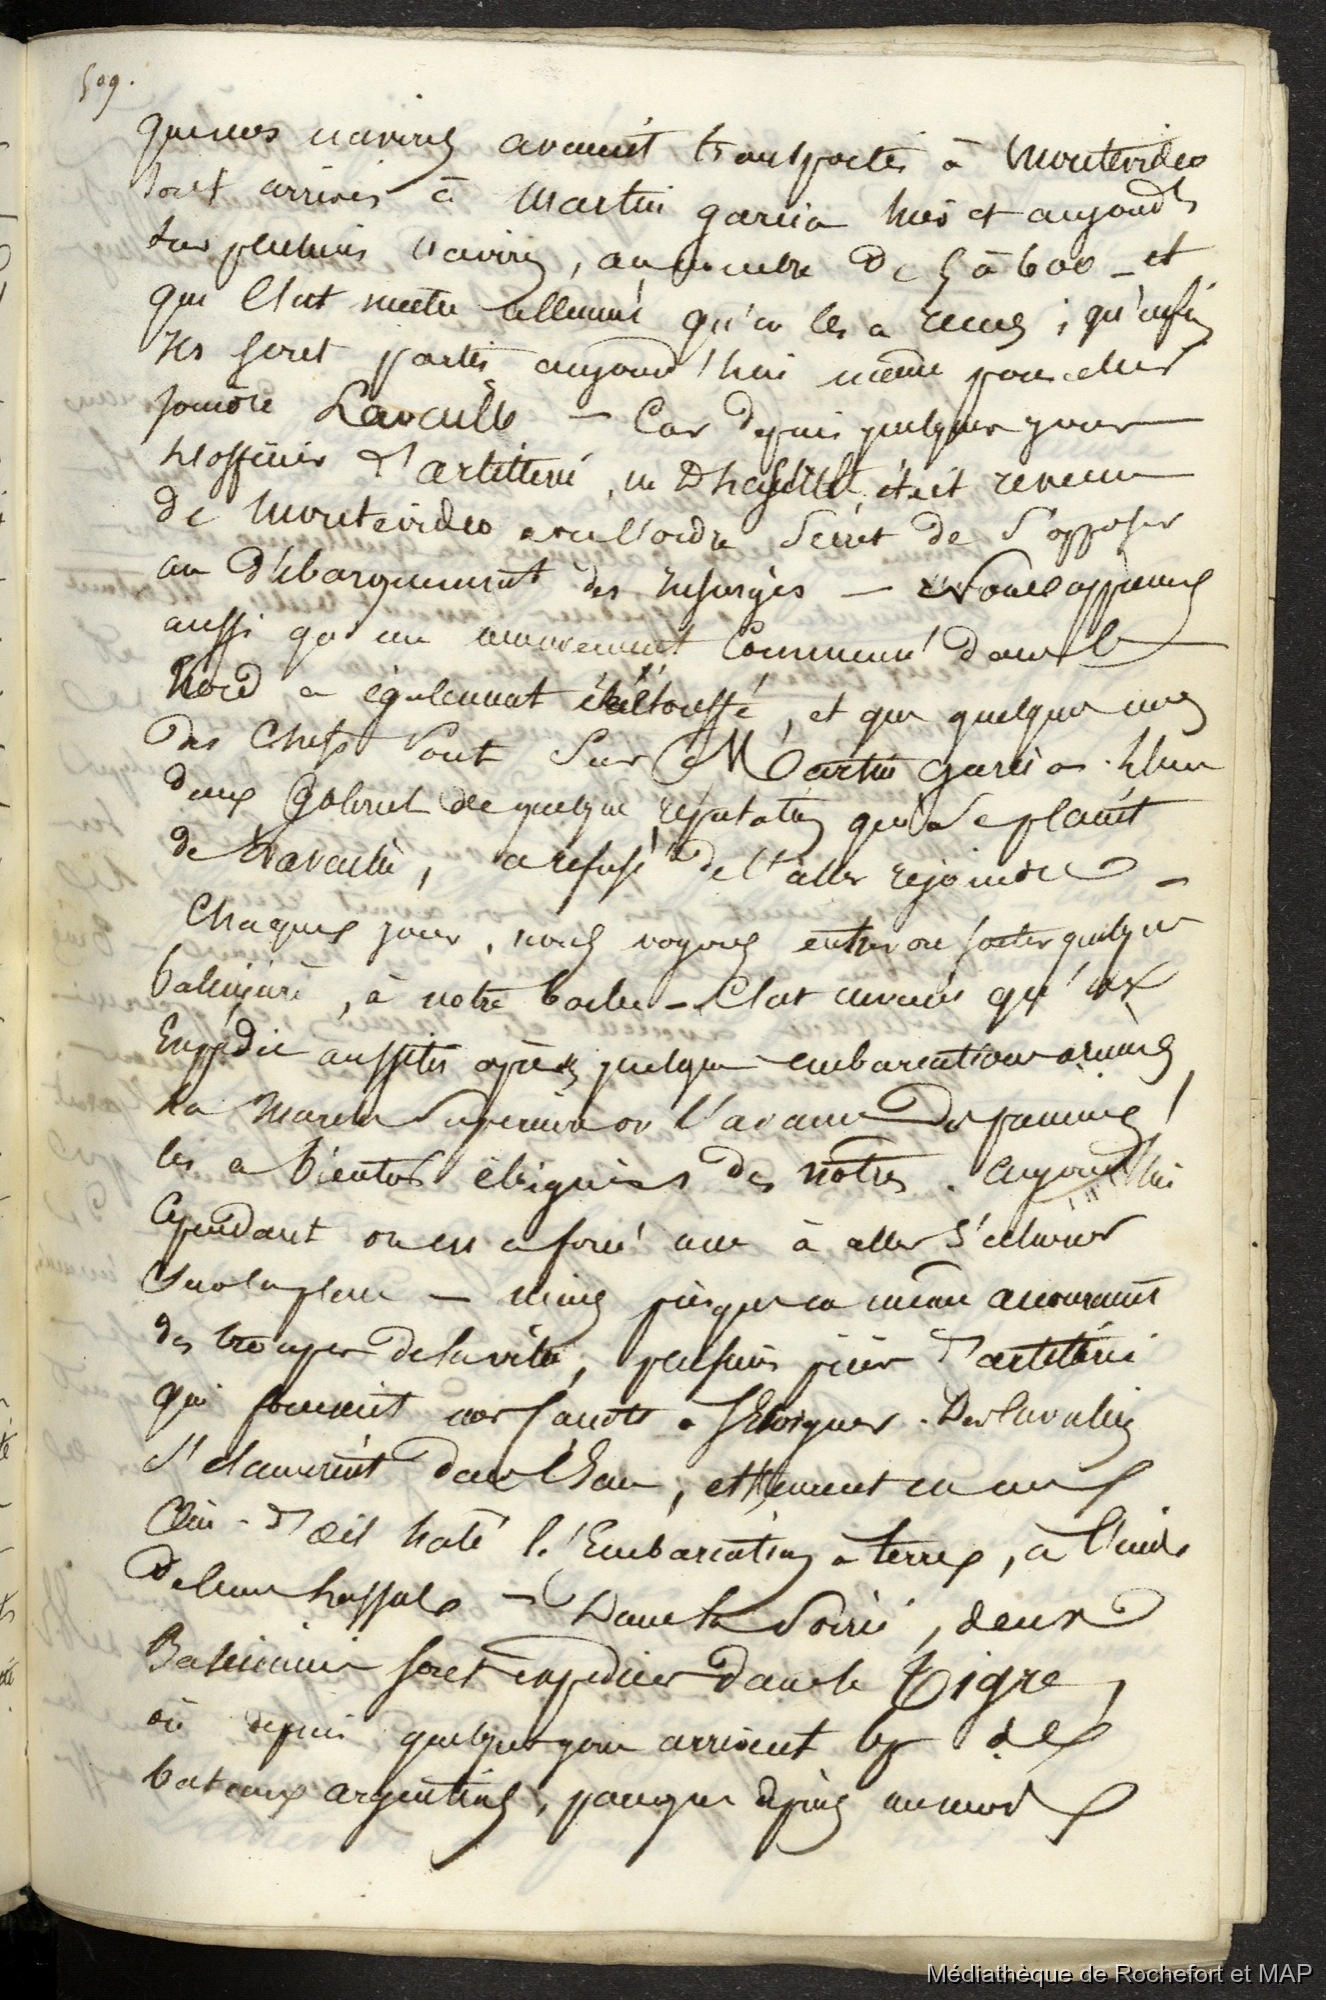 509.
que nos navires avaient transportés à Montevideo
sont arrivés à Martin garcia hier et aujourd'h
sur plusieurs navires, au nombre de 5 à 600 _ et
que c'est mettre allemand qu'on les a reçus ; qu'enfin
ils sont partis aujourd'hui même pour aller
joindre Lavalle – Car depuis quelques jours
un officier d'artillerie, était revenu
de Montevideo avec l'ordre secret de s'opposer
au débarquement des insurgés — Nous apprenons
aussi qu'un mouvement commencé dans le
Nord a également été étouffé, et que quelques uns
des chefs sont sur Martin garcia. L'un
d'eux, de quelque réputation qui se plaint
de Lavalle, a refusé de l'aller rejoindre _
Chaque jour, nous voyons entrer ou sortir quelque
baleinière, à notre barbe – C'est en vain qu'on
Expédie aussitôt après quelques embarcations armées,
La Marche supérieure ou l'avance des
les a bientôt éloignées des nôtres. Aujourd'hui
Cependant on en a forcé une à aller s'échouer
sur la plage — mais jusques là même accoururent
des troupes de la ville, plusieurs pièces d'artillerie
qui forcèrent nos canots à s'éloigner. Des cavaliers
s'élancèrent dans l'Eau, et eurent en un
Clin-d'œil halé l'Embarcation à terre, à l'aide
de leurs – Dans la soirée, deux
Baleinières sont expédiées dans le Tigre,
où depuis quelques jours arrivent des
bateaux argentins, parce que depuis un mois
Médiathèque de Rochefort et MAP